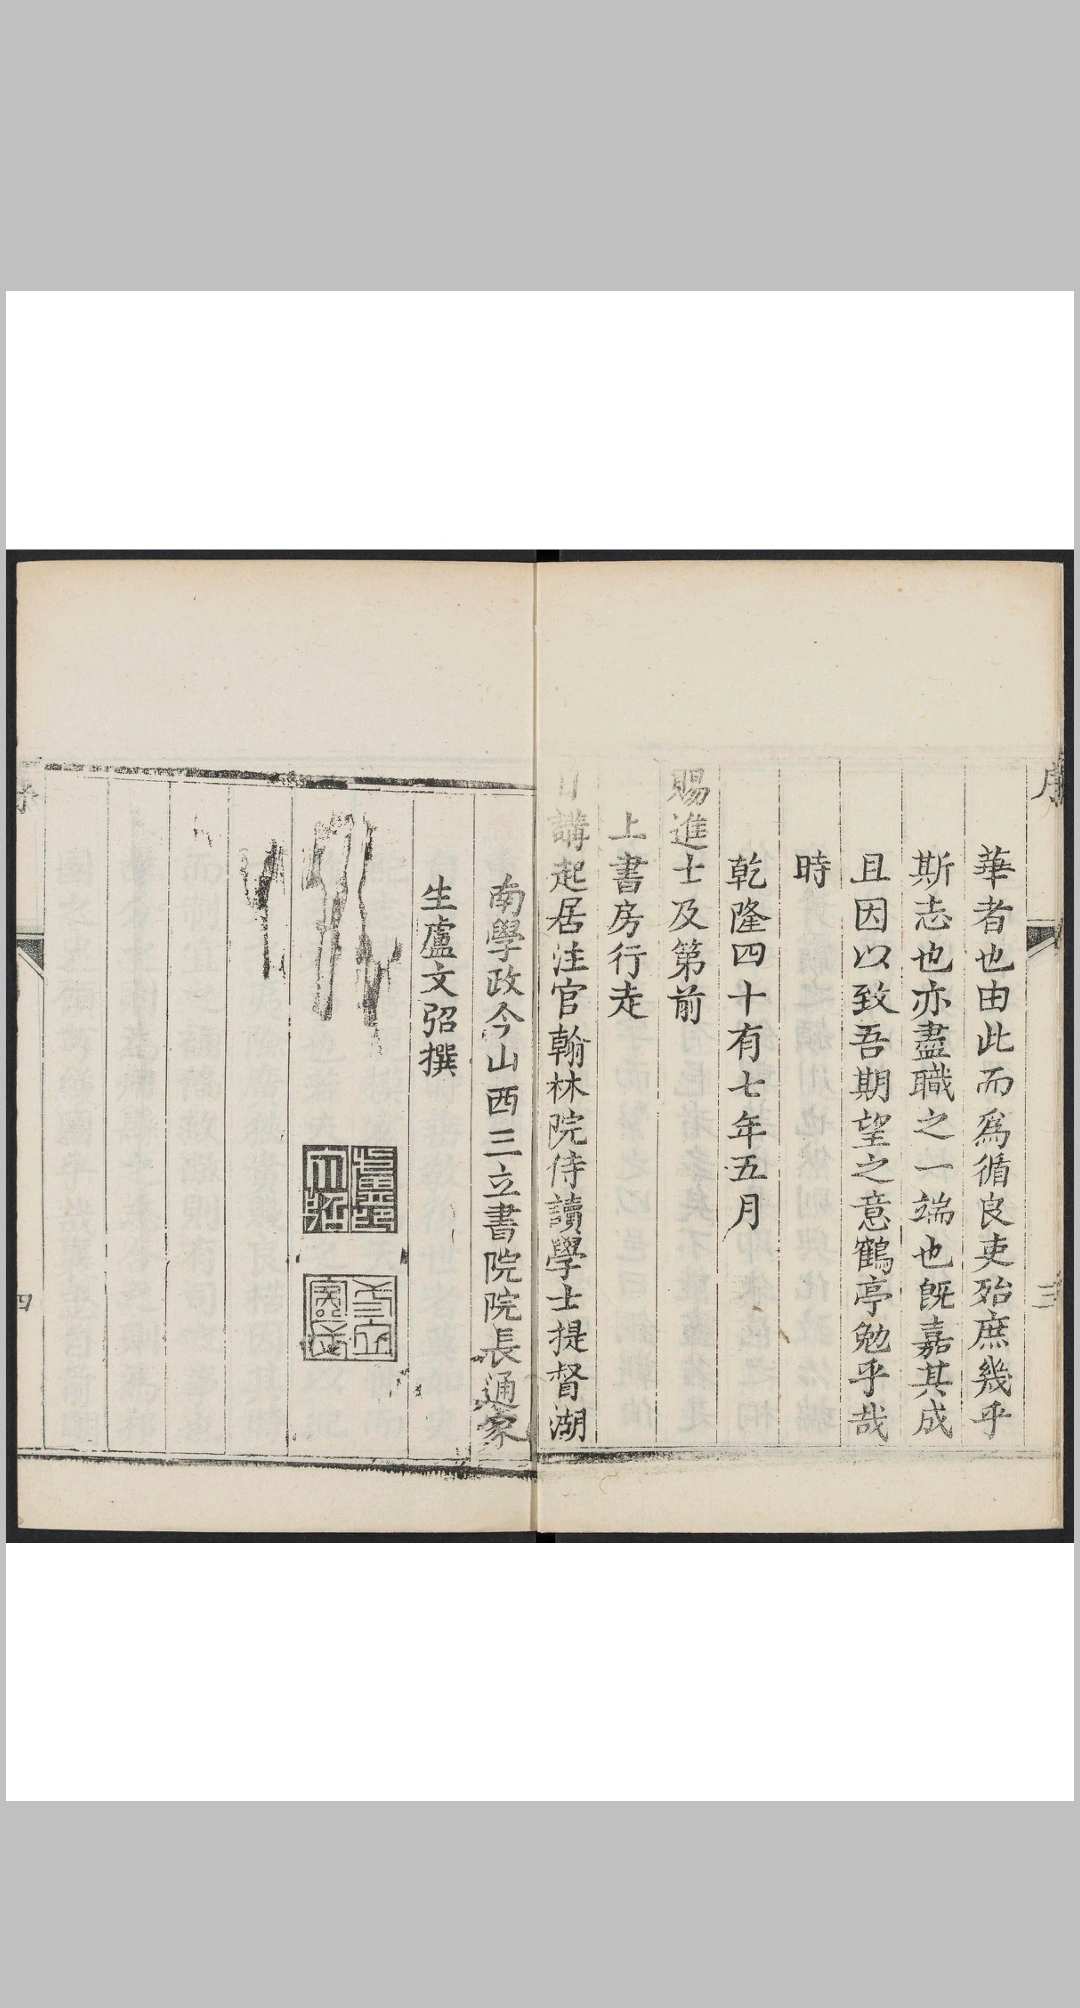 序
華者也由此而爲循良吏殆庶幾乎
斯志也亦盡職之一端也旣嘉其成
且因以致吾期望之意鶴亭勉乎哉
時
乾隆四十有七年五月
賜進士及第前
上書房行走
日講起居注官翰林院侍讀學士提督湖
三
南學政今山西三立書院院長通家
生盧文弨撰
四